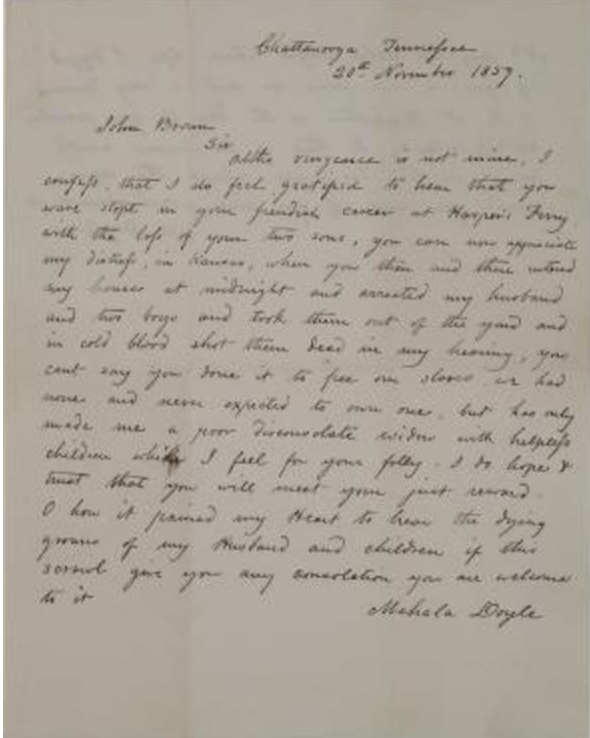 Chattanooga Tennessee
20th November 1859.
John Brown
Sir
altho vengence is not mine, I
confess, that I do feel gratified to hear that you
ware stopt in your fiendish career at Harper's Ferry,
with the loss of your two sons, you can now appreciate
my distress, in Kansas, when you then and there entered
my house at midnight and arrested my husband
and two boys and took them out of the yard and
in cold blood shot them dead in my hearing, you
cant say you done it to free our slaves, we had
none and never expected to own one, but has only
made me a poor disconsolate widow with helpless
children while I feel for your folly. I do hope &
trust that you will meet your just reward.
O how it pained my Heart to hear the dying
groans of my Husband and children if this
scrawl give you any consolation you are welcome
to it
Mahala Doyle